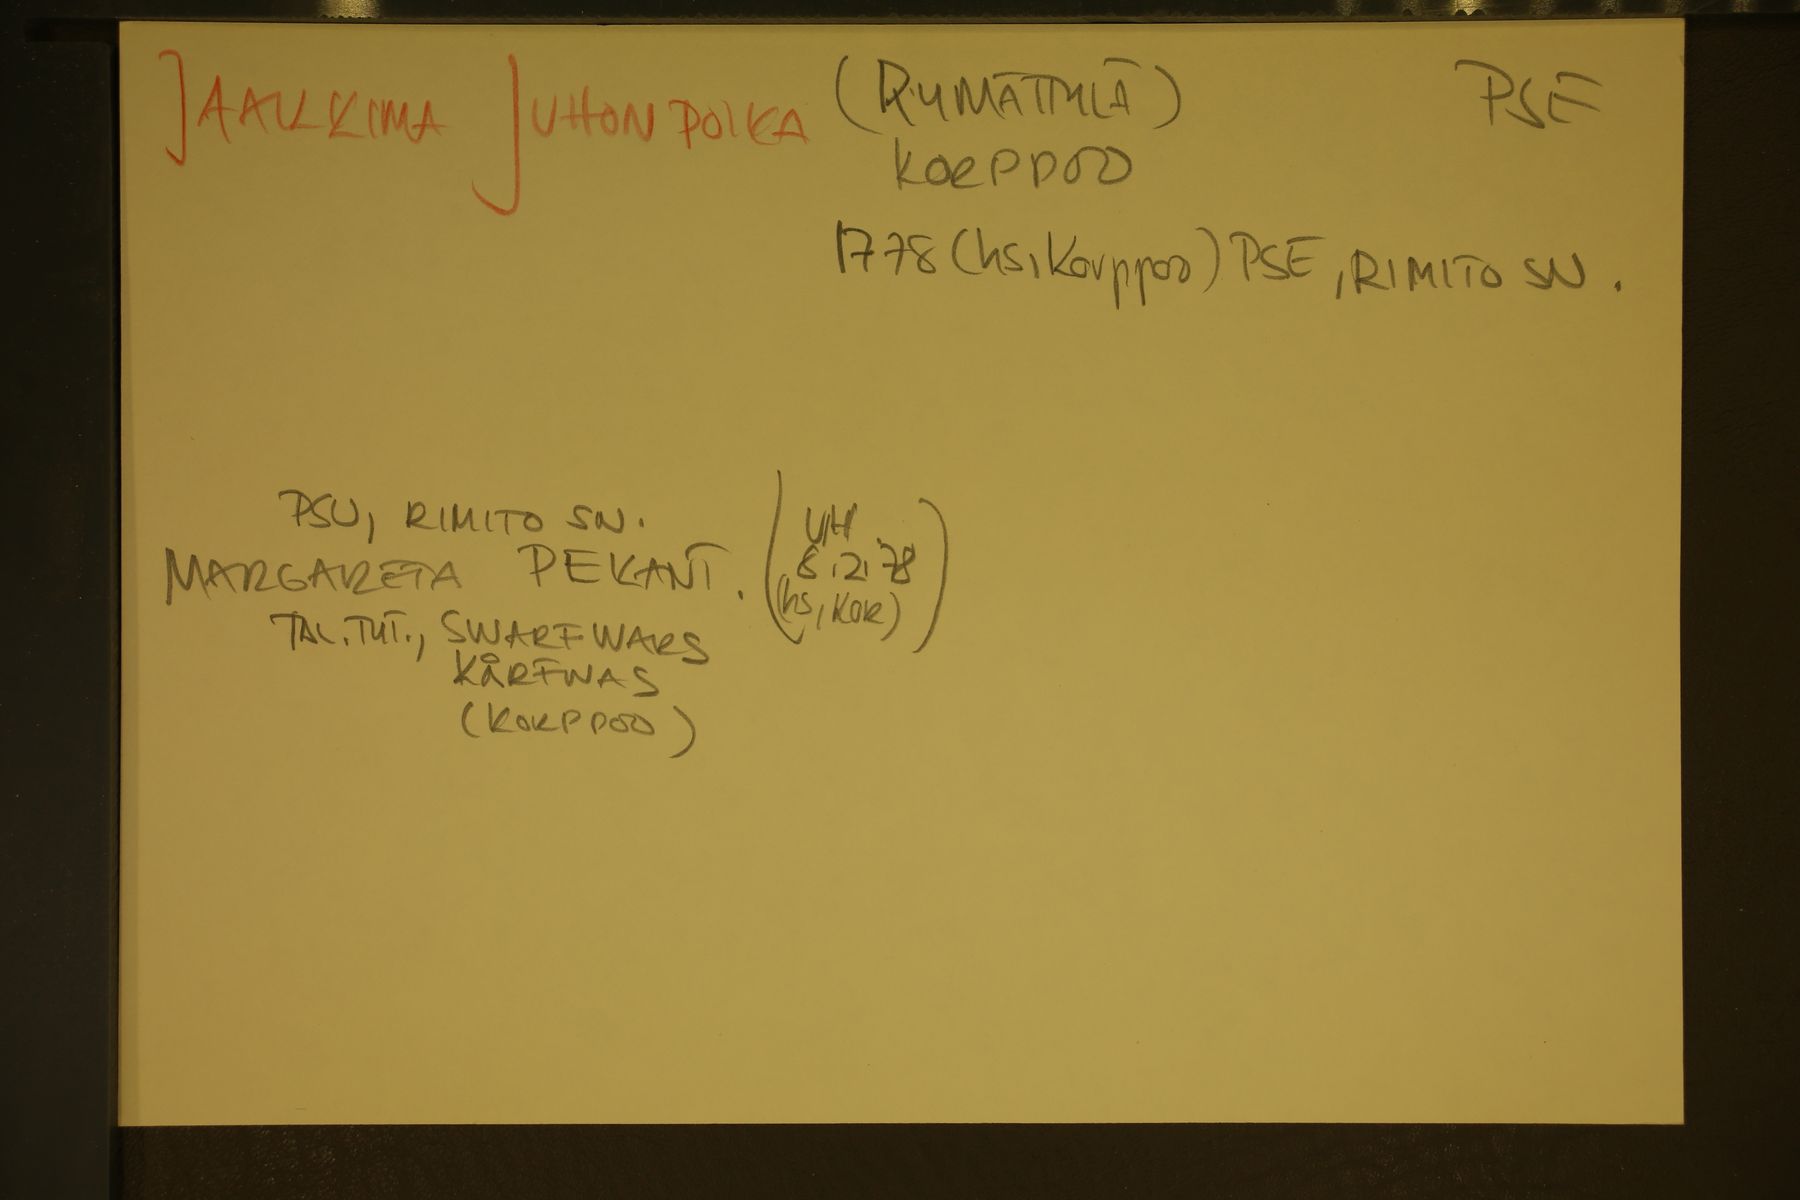 JAAKKIMA JUHONPOIKA (RYMÄTTYLÄ) PSE
KORPPOO
1778 (hs, Korppoo) PSE, RIMITO SN.
PSU, RIMITO SN.
MARGARETA PEKANT.
(VIH 8.2.78 (hs, KOR))
TAL.TYT., SWARFWARS
KÅRFWAS
(KORPPOO)